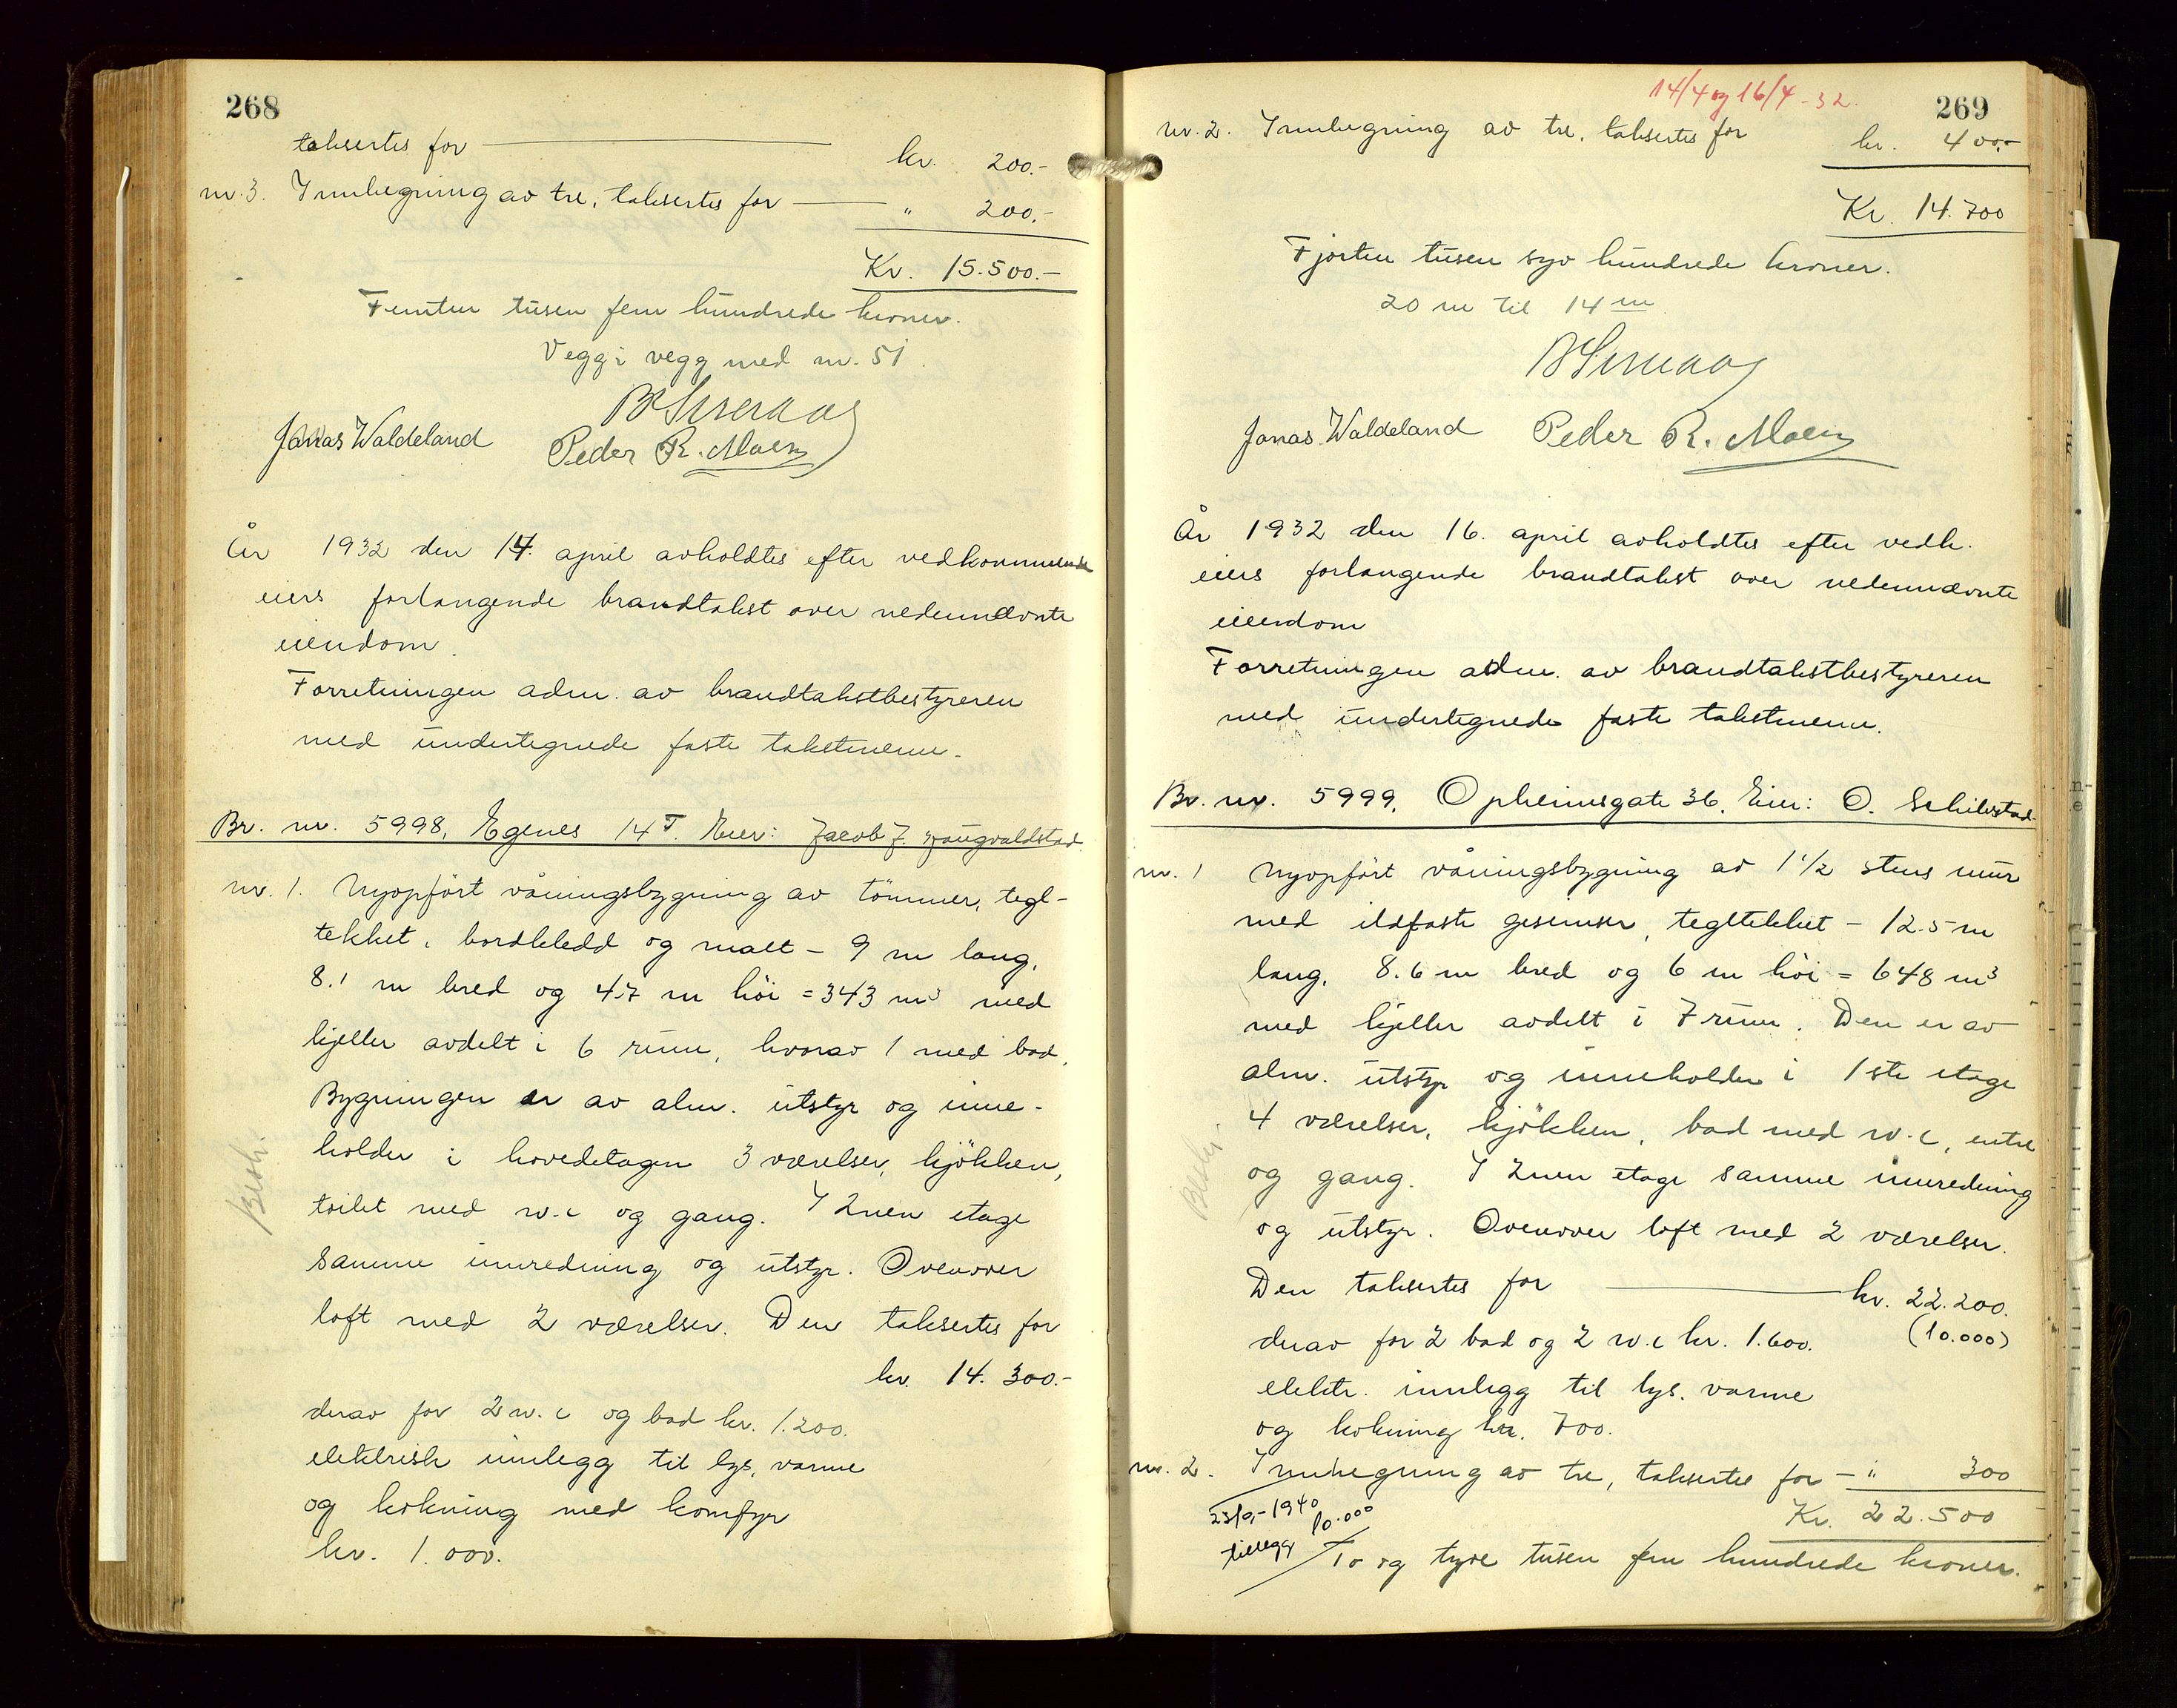 268
taksertes for kr. 200.-
nr. 3. Innhegning av tre, taksertes for " 200.-
Kr. 15.500.-
Femten tusen fem hundrede kroner.
Vegg i vegg med nr. 51.
Jonas Waldeland Peder R. Moen
År 1932 den 14. april avholdtes efter vedkommende
eiers forlangende brandtakst over nedennævnte
eiendom.
Forretningen adm. av brandtakstbestyreren
med undertegnede faste takstmenn.
Br. nr. 5998, Egenes 14 T. Eier: Jacob J.
nr. 1. Nyopført våningsbygning av tömmer, tegl-
tekket, bordkledd og malt - 9 m lang,
8.1 m bred og 4.7 m höi = 343 m³ med
kjeller avdelt i 6 rum, hvorav 1 med bad.
Bygningen er av alm. utstyr og inne-
holder i hovedetagen 3 værelser, kjökken,
toilet med w.c og gang. I 2nen etage
samme innredning og utstyr. Ovenover
loft med 2 værelser. Den taksertes for
kr. 14.300.-
derav for 2 w.c og bad kr. 1.200.
elektrisk innlegg til lys, varme
og kokning med komfyr
kr. 1.000.
Besk.
14/4 og 16/4-32.
269
nr. 2. Innhegning av tre, taksertes for kr. 400.-
Kr. 14.700
Fjorten tusen syv hundrede kroner.
20 m til 14 m
Jonas Waldeland Peder R. Moen
År 1932 den 16. april avholdtes efter vedk.
eiers forlangende brandtakst over nedennævnte
eiendom
Forretningen adm. av brandtakstbestyreren
med undertegnede faste takstmenn.
Br. nr. 5999, Opheimsgate 36, Eier: O. Schibstad
nr. 1 Nyopført våningsbygning av 1 1/2 stens mur
med ildfaste gesimser, tegltekket - 12.5 m
lang, 8.6 m bred og 6 m höi = 648 m³
med kjeller avdelt i 7 rum. Den er av
alm. utstyr og inneholder i 1ste etage
4 værelser, kjökken, bad med w.c, entre
og gang. I 2nen etage samme innredning
og utstyr. Ovenover loft med 2 værelser.
Den taksertes for kr. 22.200.
derav for 2 bad og 2 w.c kr. 1.600. (10.000)
elektr. innlegg til lys, varme
og kokning kr. 700.
nr. 2. Innhegning av tre, taksertes for - " 300
Kr. 22.500
1940 10.000
tillegg
To og tyve tusen fem hundrede kroner.
Besk.